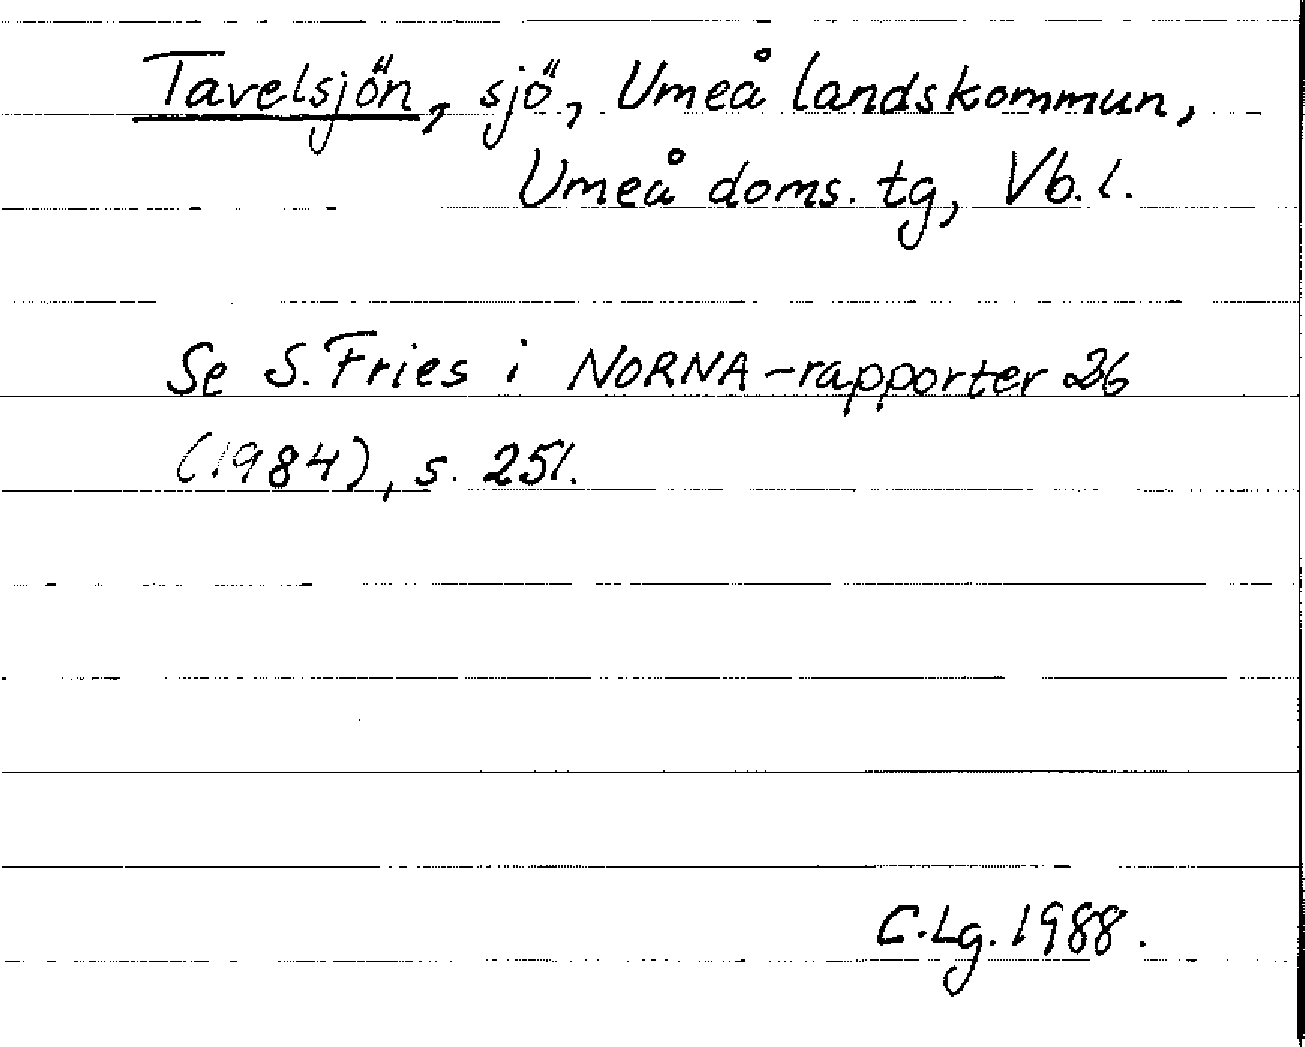 Tavelsjön, sjö, Umeå landskommun,
Umeå doms. tg, Vb. l.
Se S. Fries i NORNA-rapporter 26
(1984), s. 251.
C.Lg. 1988.